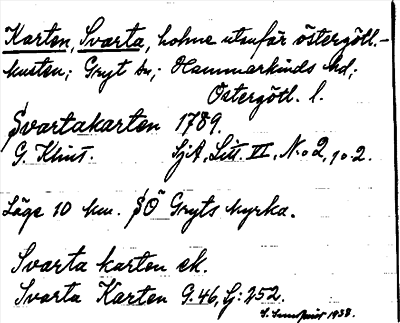 Karten, Svarta, holme utanför östergötl.-
kusten; Gryt sn; Hammarkinds hd;
Östergötl. l.
Svartakarten 1789.
G. Klint. SjA, Litt. VI, N:o 2, 1 o. 2.
Läge 10 km. SÖ Gryts kyrka.
Svarta karten ek.
Svarta Karten G. 46, S: 252.
1938.